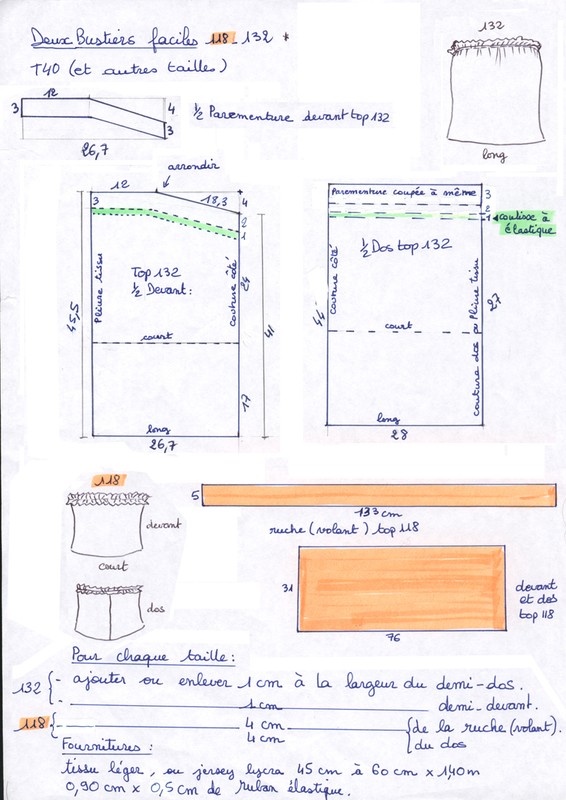 Deux Bustiers faciles 118 - 132 *
T40 (et autres tailles)
132
long
12
3
4
3
26,7
1/2 Parementure devant top 132
arrondir
12
18,3
4
3
2
1
Top 132
1/2 Devant:
Pliure tissu
couture côté
24
45,5
41
court
17
long
26,7
Parementure coupée à même
3
2
1
coulisse à
élastique
1/2 Dos top 132
couture côté
44
27
couture dos ou Pliure tissu
court
long
28
118
devant
court
dos
5
133 cm
ruche (volant) top 118
31
76
devant
et dos
top 118
Pour chaque taille:
132 { - ajouter ou enlever 1 cm à la largeur du demi-dos.
- 1 cm demi-devant.
118 { - 4 cm { de la ruche (volant).
- 4 cm du dos
Fournitures:
tissu léger, ou jersey lycra 45 cm à 60 cm x 1,40 m
0,90 cm x 0,5 cm de ruban élastique.